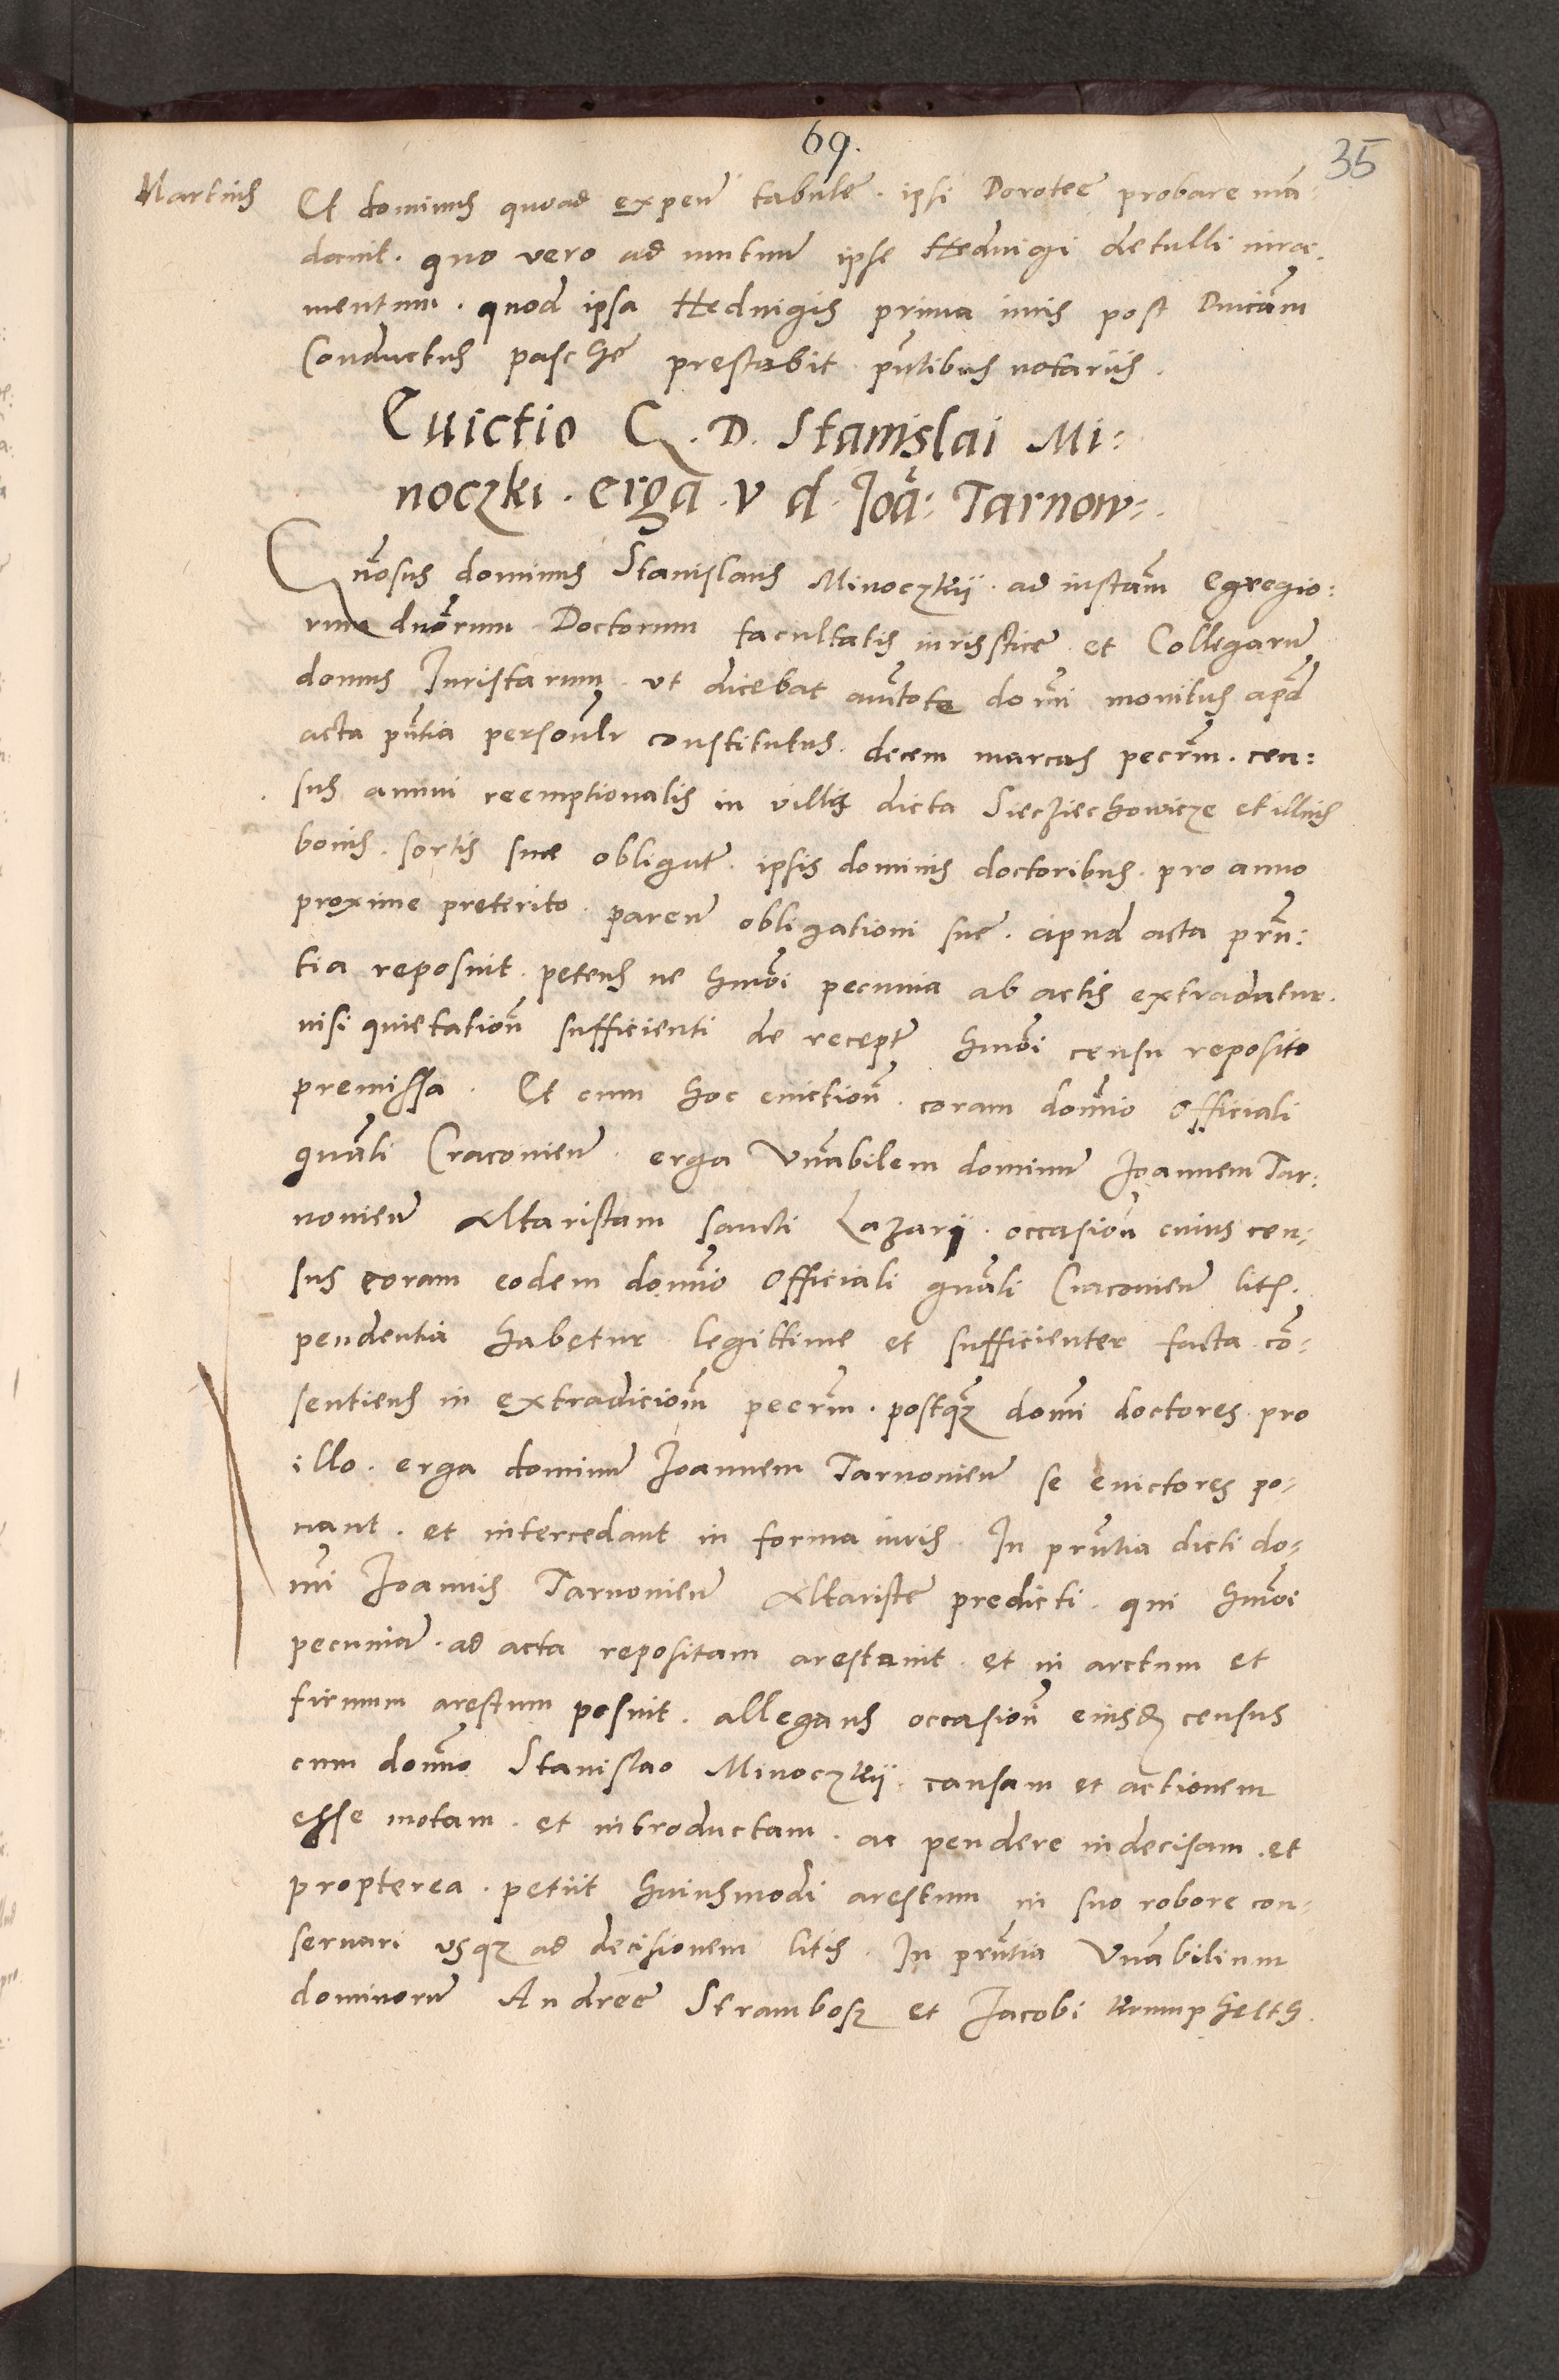 69.
35
Martius
Et dominus quoad expen̄ tabulē. ipsi Dorotee probare mā-
dauit. quo vero ad mutuū ipse Heduigi detulli iura-
mentum. quod ipsa Heduigis prima iuris post Dnicam̄
Conductus paschē prestabit pn̄tibus notariis.
Euictio G. D. Stanislai Mi:
noczki. erga. v d. Joā: Tarnow:.
Gn̄osus dominus Stanislaus Minoczkij. ad instam̄ egregio:
rum dn̄orum Doctorum facultatis iuristicē et Collegarū
domus Juristarum. vt dicebat domī monitus apd̄
acta pn̄tia personlr̄ constitutus. decem marcas pecn̄m. cen:
sus annui reemptionalis in villis dicta Sieciechowicze et illius
bonis. sortis suæ obligat̄. ipsis dominis doctoribus. pro anno
proxime preterito. paren̄ obligationi suē. apud acta prn̄:
tia reposuit. petens ne hmōi pecunia ab actis extradatur.
nisi quietation̄ sufficienti de recept̄ hmōi censu reposito
premissa. Et cum hoc euiction̄. coram domīo Officiali
gnāli Cracouien̄. erga Vnābilem dominū Joannem Tar:
nouien̄ Altaristam sancti Lazarij. occasion̄ cuius cen-
sus coram eodem domīo Officiali gnāli Cracouien̄ litis.
pendentia habetur. legittime et sufficienter facta. cō-
sentiens in extradiciom̄ pecn̄m. postqz̄ domī doctores. pro
illo. erga dominū Joannem Tarnouien̄ se euictores po-
nant. et intercedant in forma iuris. In prn̄tia dicti do-
mī Joannis Tarnouien̄ Altaristē predicti. qui hmōi
pecuniā. ad acta repositam arestauit. et in arctum et
firmum arestum posuit. allegans occasion̄ eiusd. census
cum domīo Stanislao Minoczkij. causam et actionem
esse motam. et introductam. ac pendere indecisam. et
propterea. petiit huiusmodi arestum in suo robore con-
seruari vsqz ad decisionem litis. In prn̄tia Vnābilium
dominorū Andreē Strambosz et Jacobi Krumpheltz.